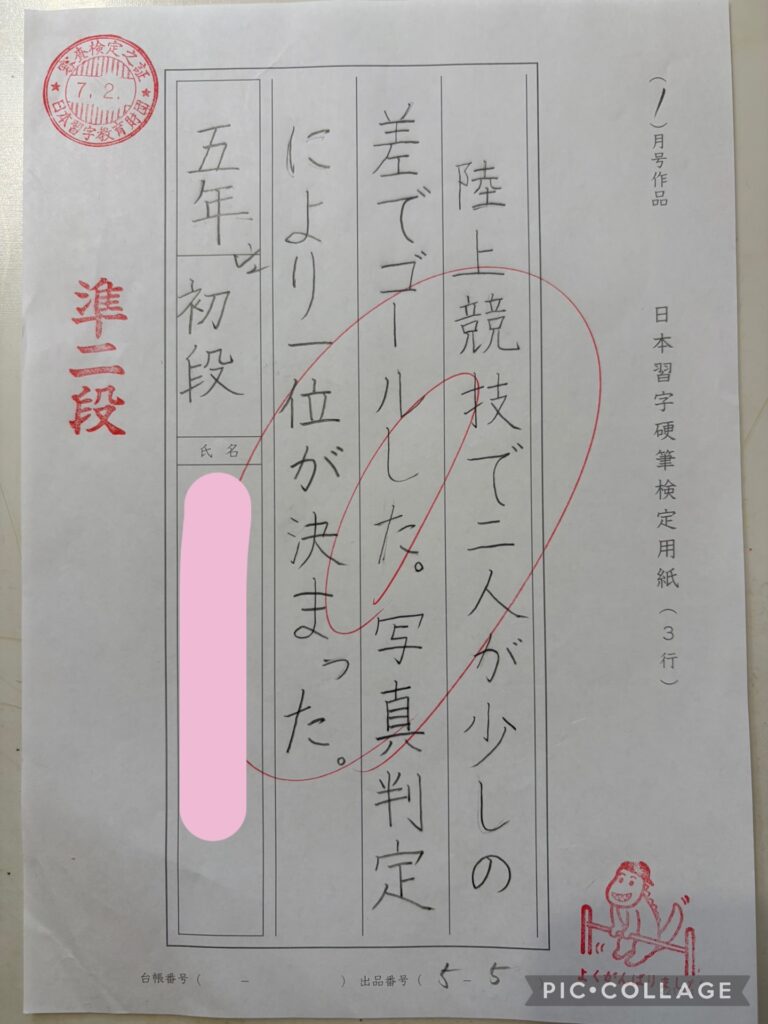 (1)月号作品
日本習字硬筆検定用紙(3行)
陸上競技で二人が少しの
差でゴールした。写真判定
により一位が決まった。
五年
初段
氏名
審査検定之証
7.2.
日本習字教育財団
準二段
台帳番号( - )
出品番号( 5-5
よくがんばりました
PIC•COLLAGE